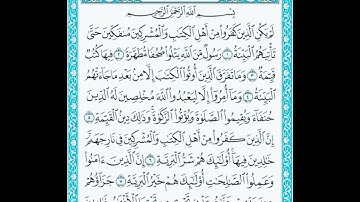 بِسْمِ اللَّهِ الرَّحْمَٰنِ الرَّحِيمِ
لَمْ يَكُنِ الَّذِينَ كَفَرُوا مِنْ أَهْلِ الْكِتَٰبِ وَالْمُشْرِكِينَ مُنفَكِّينَ حَتَّىٰ
تَأْتِيَهُمُ الْبَيِّنَةُ ١ رَسُولٌ مِّنَ اللَّهِ يَتْلُوا صُحُفًا مُّطَهَّرَةً ٢ فِيهَا كُتُبٌ
قَيِّمَةٌ ٣ وَمَا تَفَرَّقَ الَّذِينَ أُوتُوا الْكِتَٰبَ إِلَّا مِنۢ بَعْدِ مَا جَاءَتْهُمُ
الْبَيِّنَةُ ٤ وَمَا أُمِرُوا إِلَّا لِيَعْبُدُوا اللَّهَ مُخْلِصِينَ لَهُ الدِّينَ
حُنَفَاءَ وَيُقِيمُوا الصَّلَوٰةَ وَيُؤْتُوا الزَّكَوٰةَ وَذَٰلِكَ دِينُ الْقَيِّمَةِ ٥
إِنَّ الَّذِينَ كَفَرُوا مِنْ أَهْلِ الْكِتَٰبِ وَالْمُشْرِكِينَ فِي نَارِ جَهَنَّمَ
خَٰلِدِينَ فِيهَا أُولَٰئِكَ هُمْ شَرُّ الْبَرِيَّةِ ٦ إِنَّ الَّذِينَ ءَامَنُوا
وَعَمِلُوا الصَّٰلِحَٰتِ أُولَٰئِكَ هُمْ خَيْرُ الْبَرِيَّةِ ٧ جَزَاؤُهُمْ